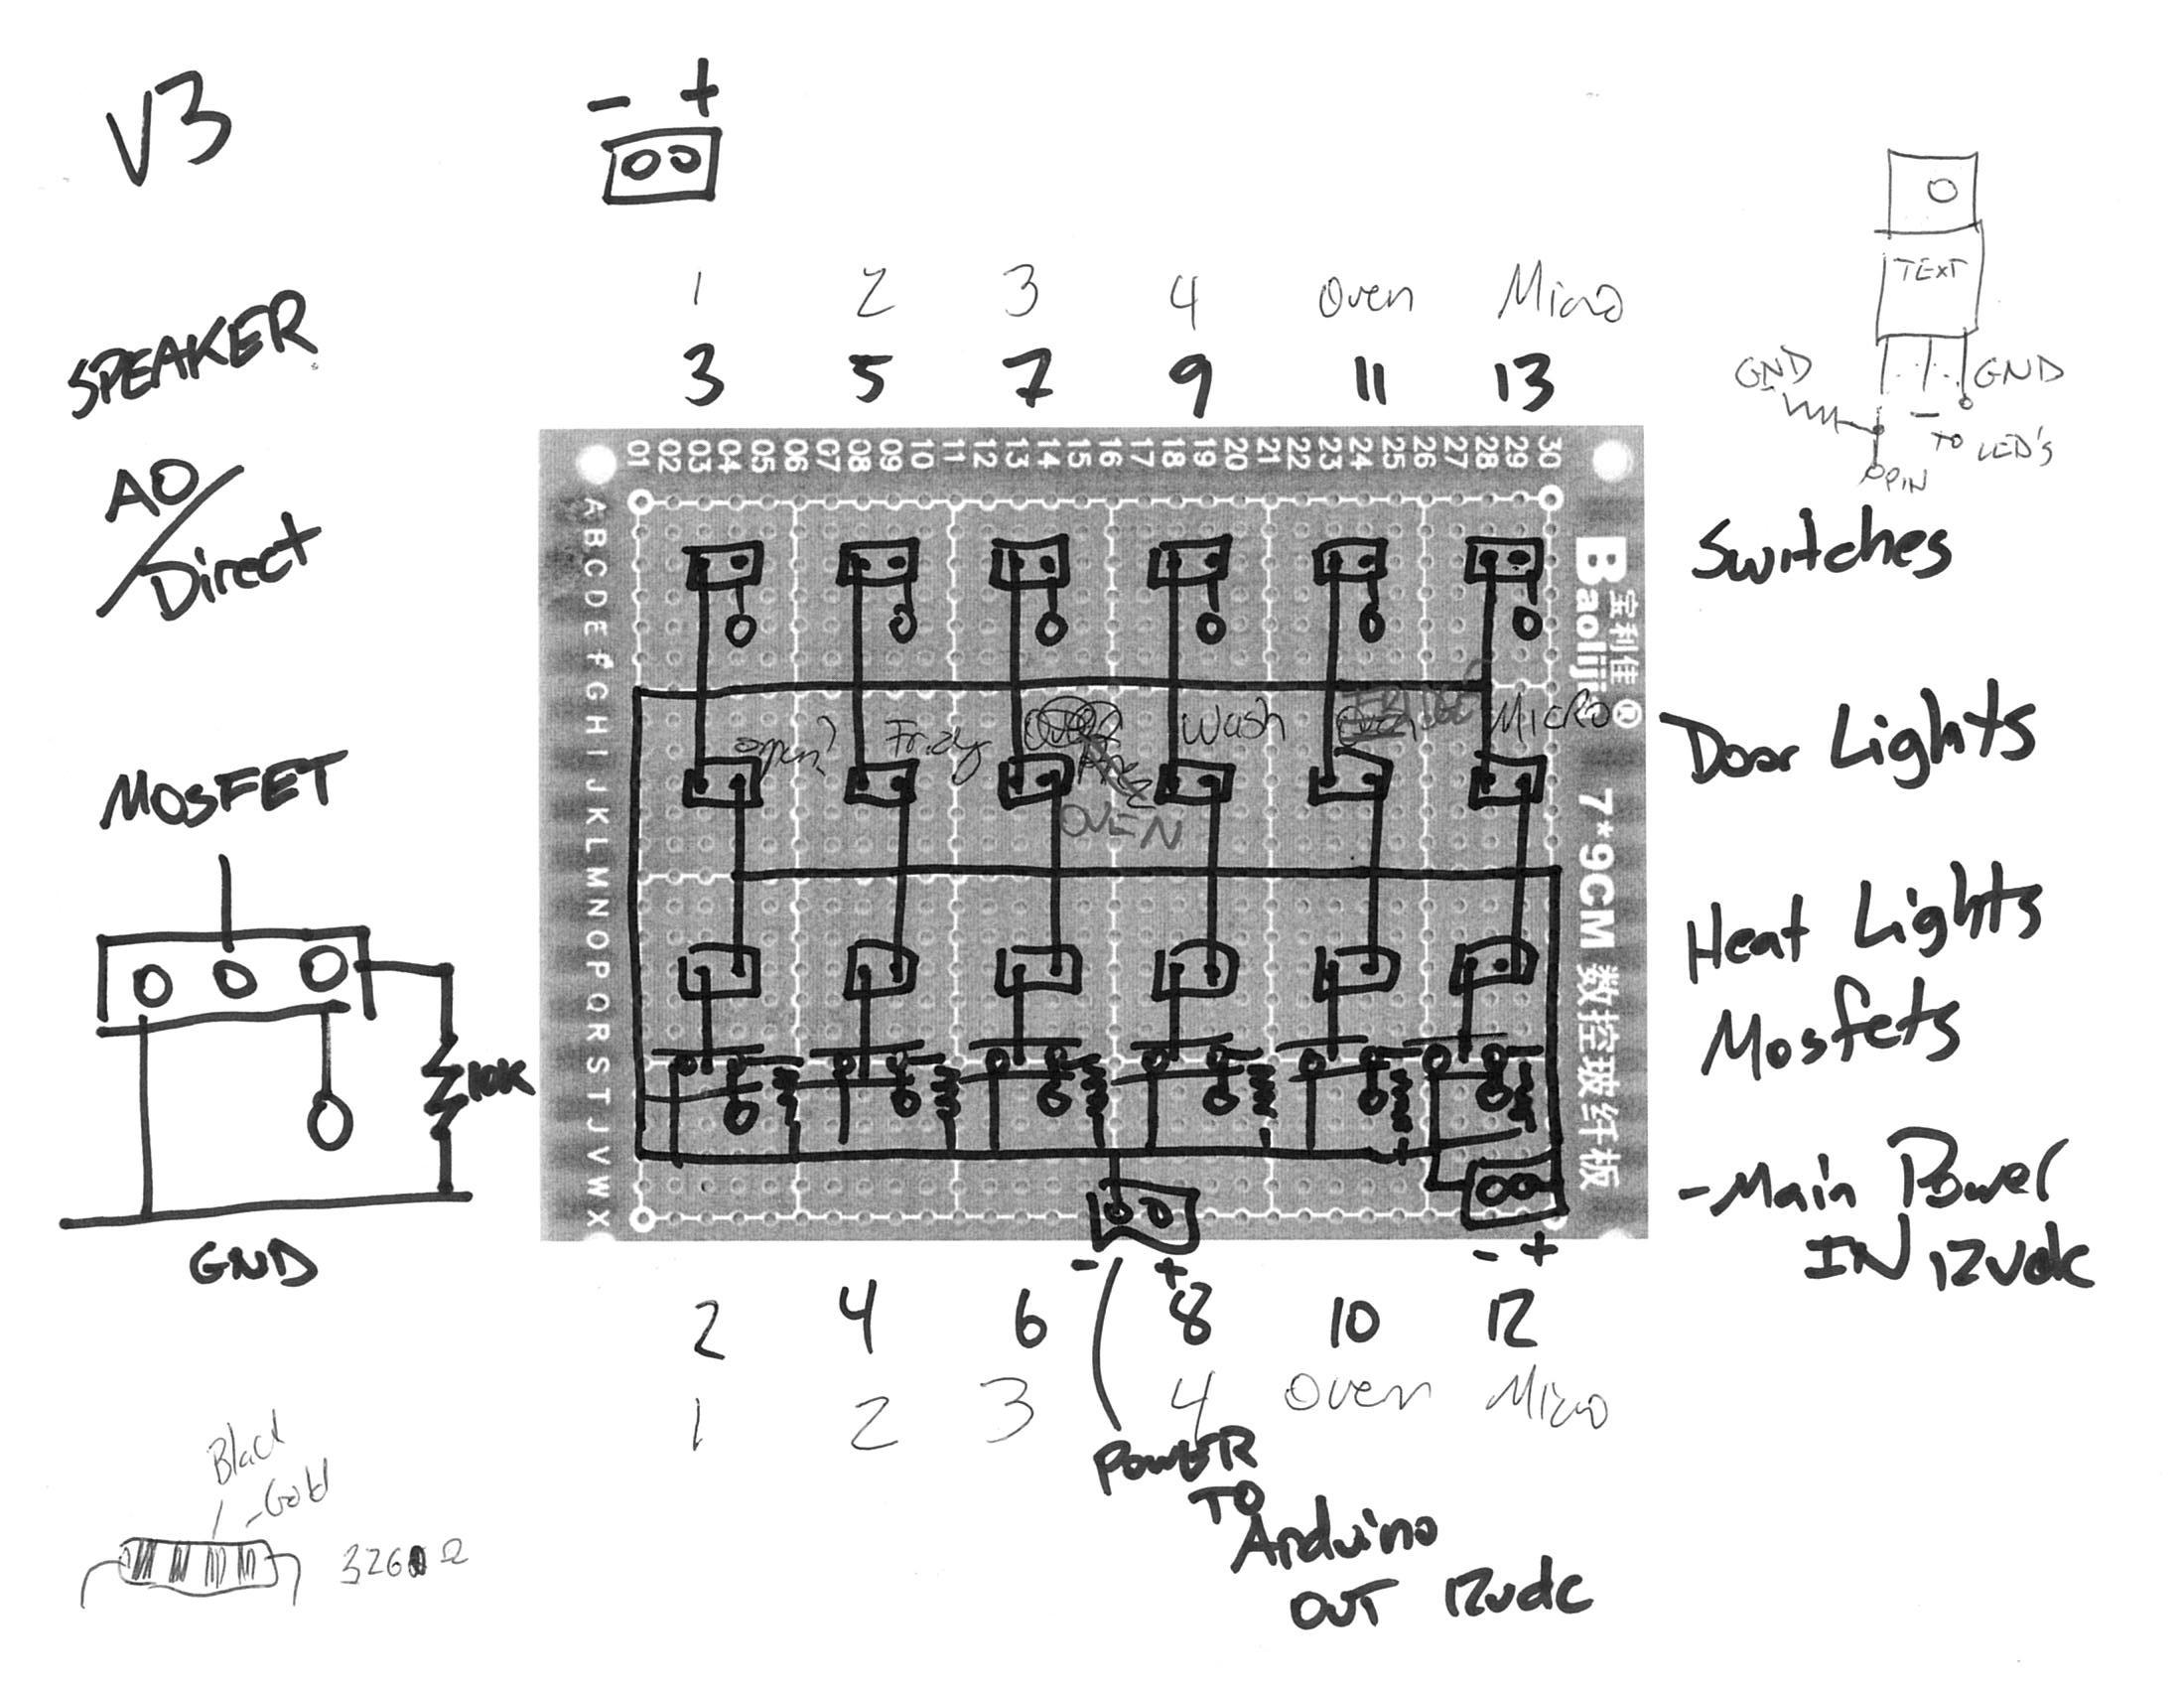 V3
- +
SPEAKER
AO/Direct
MOSFET
10K
GND
Black
Gold
Ω
1 2 3 4 Oven Micro
3 5 7 9 11 13
01 02 03 04 05 06 07 08 09 10 11 12 13 14 15 16 17 18 19 20 21 22 23 24 25 26 27 28 29 30
A B C D E F G H I J K L M N O P Q R S T J V W X
open? Wash MICRO
OVEN
宝利佳®
Baoliji
7*9CM 数控玻纤板
- +
- +
2 4 6 8 10 12
1 2 3 4 Oven Micro
POWER
TO
Arduino
OUT 12vdc
TEXT
GND
GND
TO LED'S
PIN
Switches
Door Lights
Heat Lights
Mosfets
-Main Power
IN 12vdc